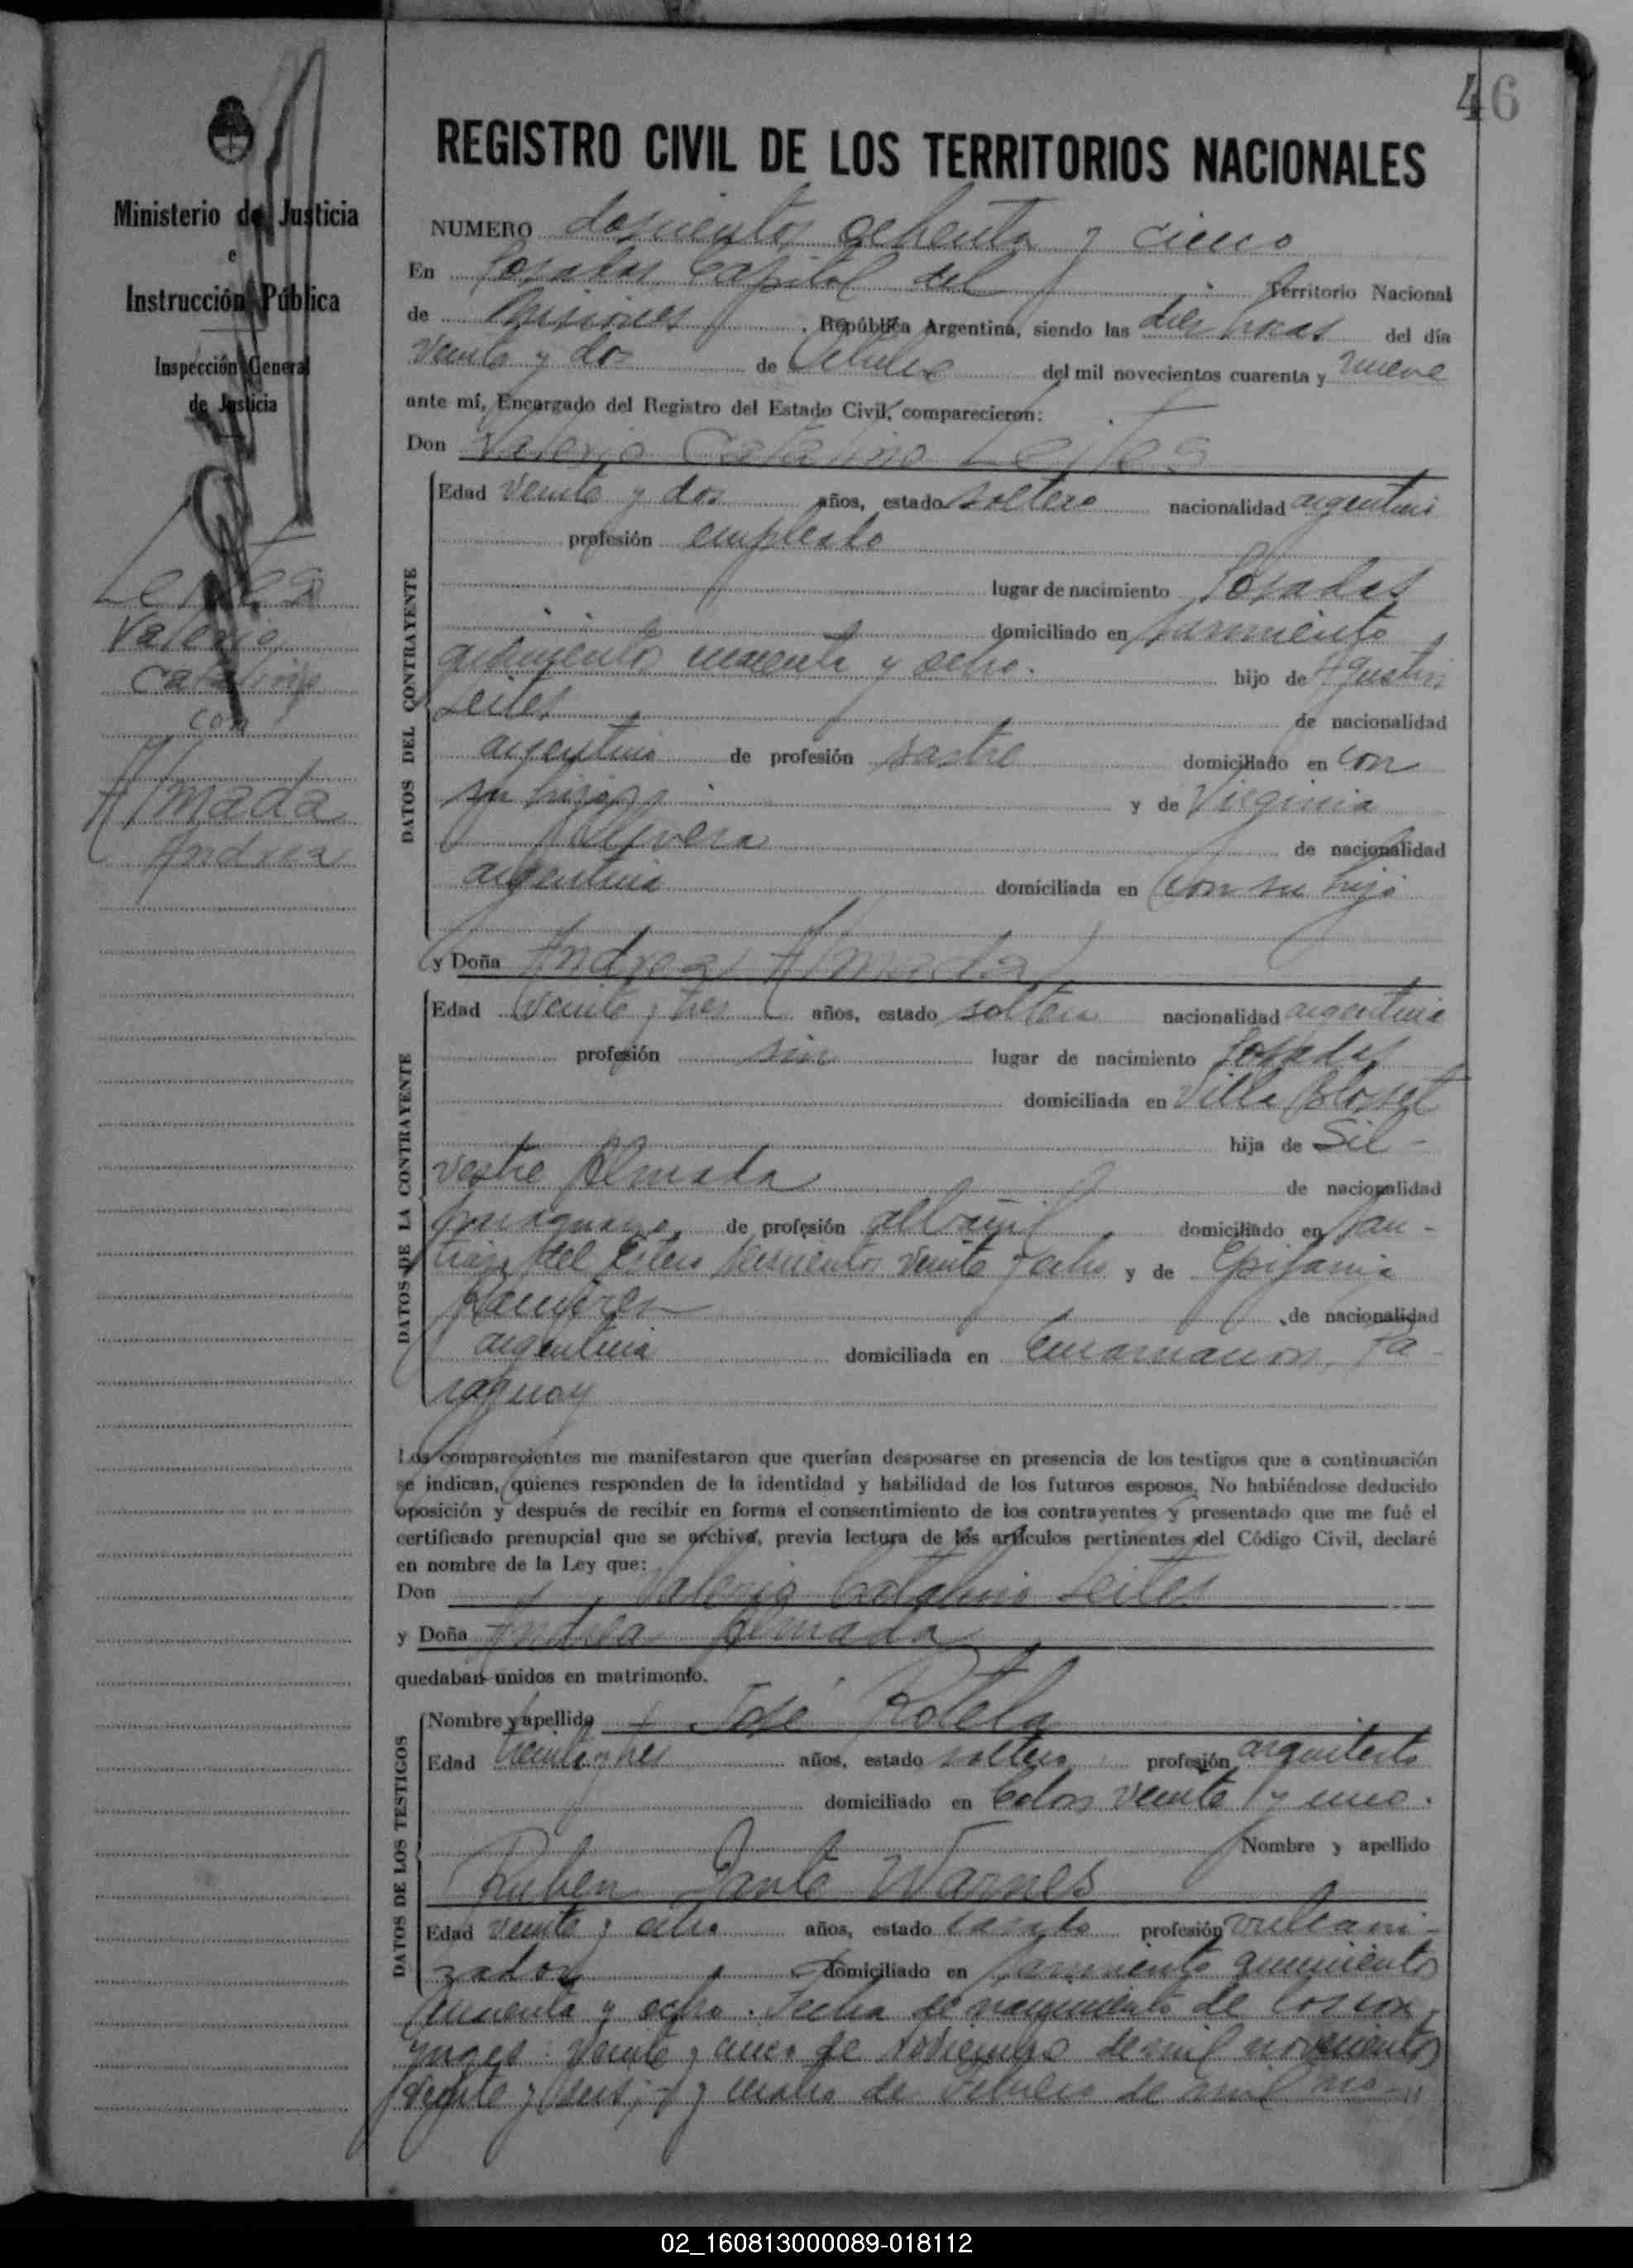 46
Ministerio de Justicia
e
Instrucción Pública
Inspección General
de Justicia
Leites
Valerio
Catalino
con
Almada
Andrea
REGISTRO CIVIL DE LOS TERRITORIOS NACIONALES
NUMERO doscientos ochenta y cinco
En Posadas Capital del Territorio Nacional
de Misiones República Argentina, siendo las diez horas del día
veinte y dos de Octubre del mil novecientos cuarenta y nueve
ante mí, Encargado del Registro del Estado Civil, comparecieron:
Don Valerio Catalino Leites
DATOS DEL CONTRAYENTE
Edad veinte y dos años, estado soltero nacionalidad argentino
profesión empleado
lugar de nacimiento Posadas
domiciliado en Sarmiento
quinientos cuarenta y ocho. hijo de Agustin
Leites de nacionalidad
argentino de profesión sastre domiciliado en con
su hijo y de Virginia
Olivera de nacionalidad
argentina domiciliada en con su hijo
y Doña Andrea Almada
DATOS DE LA CONTRAYENTE
Edad veinte y tres años, estado soltera nacionalidad argentina
profesión sin lugar de nacimiento Posadas
domiciliada en Villa Blosset
hija de Sil-
vestre Almada de nacionalidad
paraguayo de profesión albañil domiciliado en San-
tiago del Estero veinte y ocho y de Epifania
Ramirez de nacionalidad
argentina domiciliada en Encarnacion, Pa-
raguay
Los comparecientes me manifestaron que querían desposarse en presencia de los testigos que a continuación
se indican, quienes responden de la identidad y habilidad de los futuros esposos. No habiéndose deducido
oposición y después de recibir en forma el consentimiento de los contrayentes y presentado que me fué el
certificado prenupcial que se archiva, previa lectura de los artículos pertinentes del Código Civil, declaré
en nombre de la Ley que:
Don Valerio Catalino Leites
y Doña Andrea Almada
quedaban unidos en matrimonio.
DATOS DE LOS TESTIGOS
Nombre y apellido José Rotela
Edad y tres años, estado soltero profesión arquitecto
domiciliado en Colon veinte y uno.
Nombre y apellido
Ruben Dante Warnes
Edad veinte y ocho años, estado casado profesión vulcani-
zador domiciliado en Sarmiento quinientos
cuarenta y ocho. Fecha de nacimiento de los con-
yuges: veinte y cinco de Noviembre de mil novecientos
veinte y seis; y cuatro de Febrero de mil no-
02_160813000089-018112